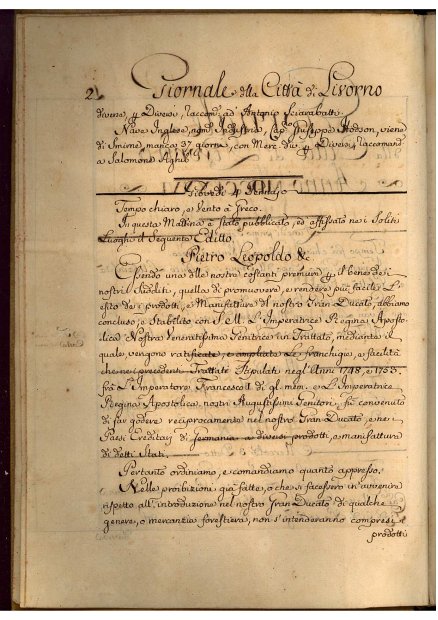 2. Giornale della Città di Livorno
diverse p Diversi, raccomd. ad Antonio Sciarabatti.
Nave Inglese, nomi. Industria, Cap. Giuseppe Hodson, viene
di Smirne, manca 37 giorni, con Merc. div. p Diversi, raccomand.
a Salomone Aghib
Giovedì 4 Gennajo
Tempo chiaro, e Vento à Greco.
In questa Mattina è stato pubblicato, ed affissato ne i Soliti
Luoghi il Seguente Editto.
Pietro Leopoldo &c.
Essendo uno delle nostre costanti premure p il bene de i
nostri Sudditi, quella di promuovere, e rendere più facile L'e-
sito de i prodotti, e Manifatture del nostro Gran Ducato, abbiamo
concluso, e Stabilito con S. M. L'Imperatrice Regina Aposto-
lica Nostra Veneratissima Genitrice un Trattato, mediante il
quale vengono ratificate, e ampliate Le franchigie, e facilità
che ne i precedenti Trattati Stipulati negl'Anni 1748, e 1753.
frà L'Imperatore Francesco I. di gl. mem. e L'Imperatrice
Regina Apostolica nostri Augustissimi Genitori, fù convenuto
di far godere reciprocamente nel nostro Gran Ducato, e ne i
Paesi Ereditarj di Germania a diversi prodotti, e manifatture
di detti Stati.
Pertanto ordiniamo, e comandiamo quanto appresso.
Nelle proibizioni già fatte, o che si facessero in avvenire
rispetto all'introduzione nel nostro Gran Ducato di qualche
genere, o mercanzia forestiera, non s'intenderanno compresi i
prodotti